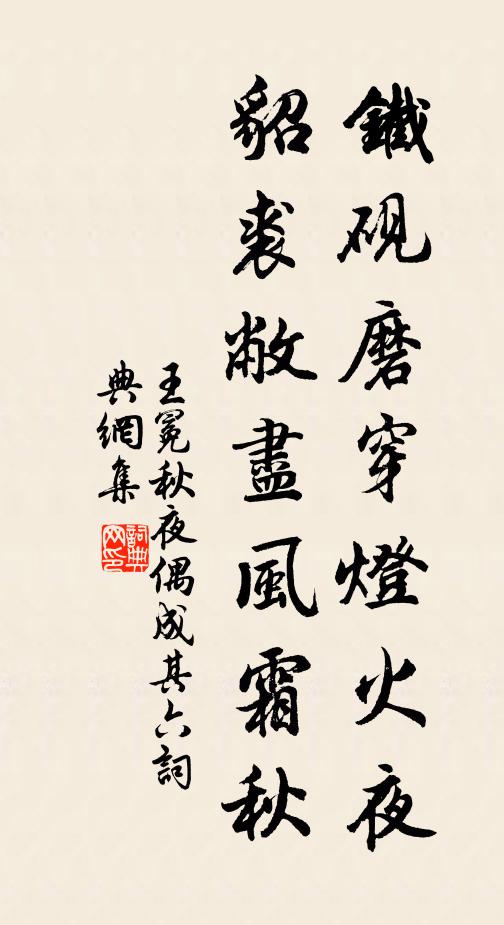 鐵硯磨穿燈火夜
貂裘敝盡風霜秋
王冕秋夜偶成其六詞
典網集
詞典網印